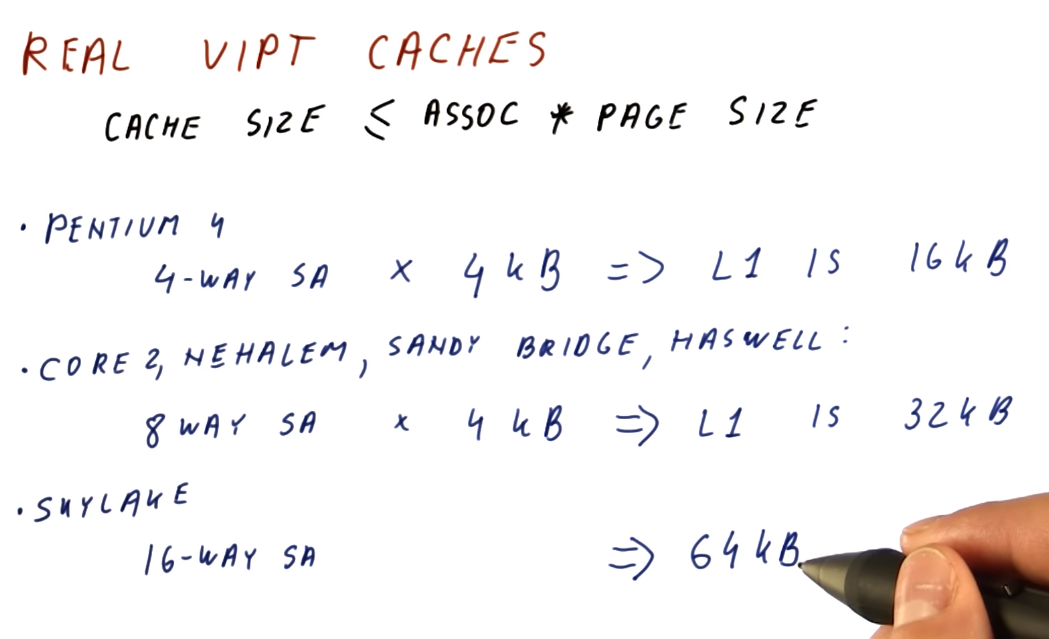 REAL VIPT CACHES
CACHE SIZE ≤ ASSOC * PAGE SIZE
• PENTIUM 4
4-WAY SA × 4 kB => L1 IS 16 kB
• CORE 2, NEHALEM, SANDY BRIDGE, HASWELL:
8 WAY SA × 4 kB => L1 IS 32 kB
• SKYLAKE
16-WAY SA => 64 kB